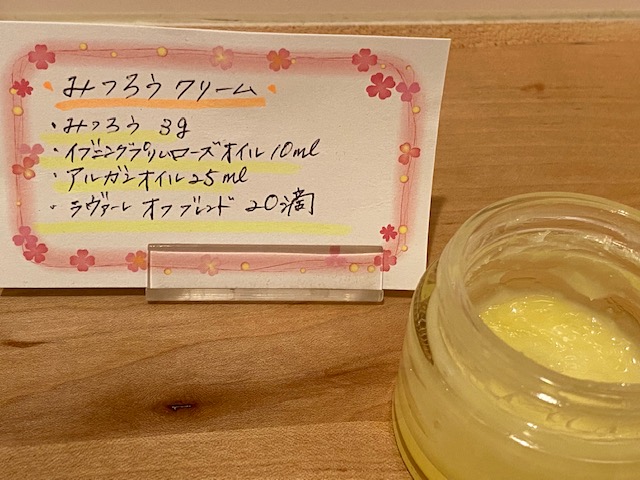 みつろうクリーム
・みつろう 3g
・イブニングプリムローズオイル 10ml
・アルガンオイル 25ml
・ラヴァーレ オブ ブレンド 20滴